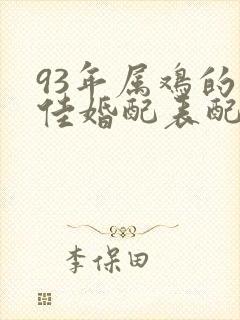 93年属鸡的
佳婚配表配
李保田